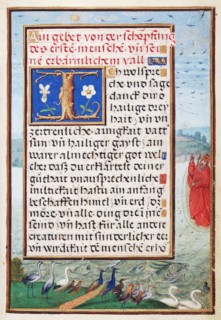 Ain gebet von der schöpfung
des erste mensche vn sei
ne erbärmlichem vall
Ich wolspre
che vnd sage
danck dir o
heilige drey
hait vn vn
zertrenliche ainigkait vatt
sun vn heiliger gayst ain
warer almechtiger got
cher das du erklärtest deiner
güthait vn aussprechenliche
miltickait hast im anfang
beschaffen himel vn erd
more vn alle ding die jne
send vn hast für alle ander
creaturen mit sunderlicher er
vn wirdikait de mensche erho